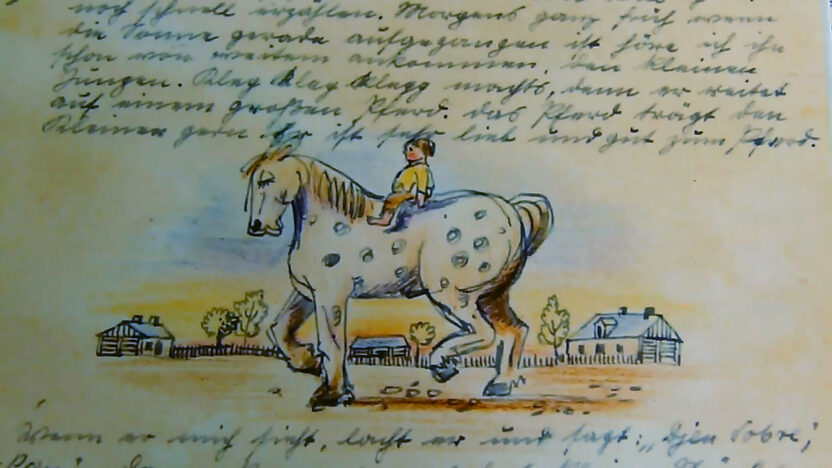 noch schnell erzählen. Morgens ganz früh wenn
die Sonne gerade aufgegangen ist höre ich ihn
schon von weitem ankommen, den kleinen
Jungen. Kleg Kleg Klegg machts, denn er reitet
auf einem großen Pferd. das Pferd trägt den
Kleinen gern. Er ist sehr lieb und gut zum Pferd.
Wenn er mich sieht, lacht er und sagt: „Djen Dobre,